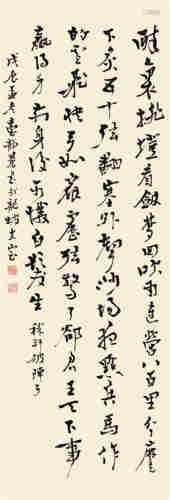 醉裏挑燈看劍夢回吹角連營八百里分麾
下炙五十弦翻塞外聲沙場秋點兵馬作
的盧飛快弓如霹靂弦驚了卻君王天下事
贏得生前身後名可憐白髮生 稼軒破陣子
戊辰孟冬臺靜農書於龍坡丈室